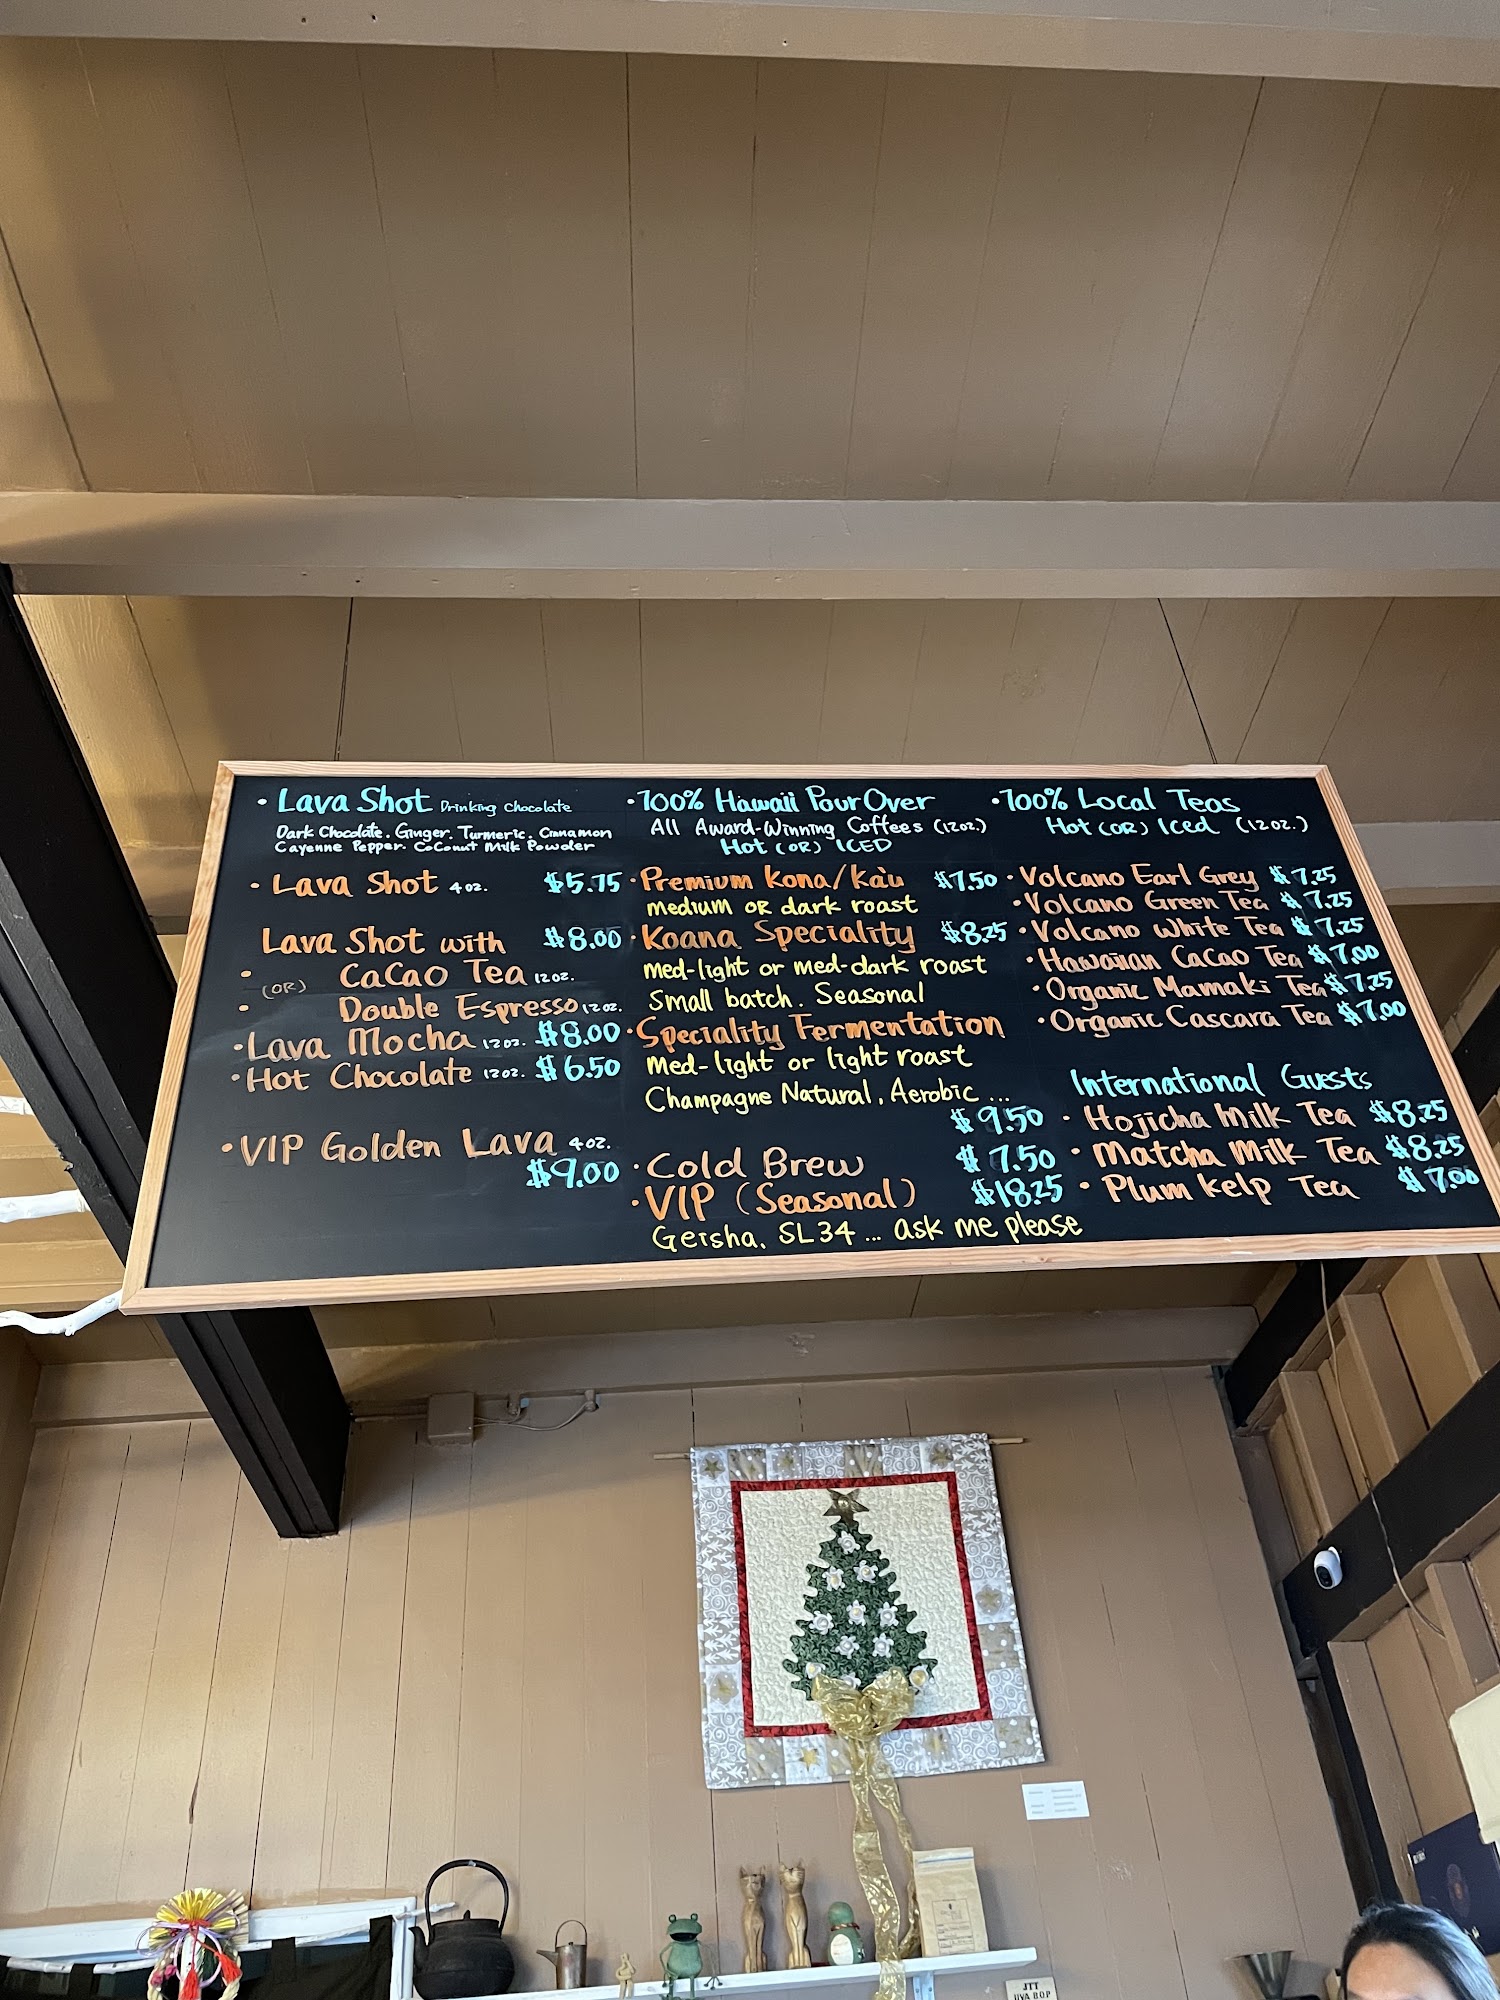 • Lava Shot Drinking Chocolate
Dark Chocolate. Ginger. Turmeric. Cinnamon
Cayenne Pepper. Coconut Milk Powder
• Lava Shot 4 oz. $5.75
Lava Shot with $8.00
• CaCao Tea 12 oz.
(OR)
• Double Espresso 12 oz.
• Lava Mocha 12 oz. $8.00
• Hot Chocolate 12 oz. $6.50
• VIP Golden Lava 4 oz.
$9.00
• 100% Hawaii Pour Over
All Award-Winning Coffees (12 oz.)
Hot (OR) ICED
• Premium Kona/Ka'u $7.50
medium OR dark roast
• Koana Speciality $8.25
med-light or med-dark roast
Small batch. Seasonal
• Speciality Fermentation
Med-light or light roast
Champagne Natural, Aerobic ...
$9.50
• Cold Brew $7.50
• VIP (Seasonal) $18.25
Geisha, SL34 ... ask me please
• 100% Local Teas
Hot (OR) Iced (12 oz.)
• Volcano Earl Grey $7.25
• Volcano Green Tea $7.25
• Volcano White Tea $7.25
• Hawaiian CaCao Tea $7.00
• Organic Mamaki Tea $7.25
• Organic Cascara Tea $7.00
International Guests
• Hojicha Milk Tea $8.25
• Matcha Milk Tea $8.25
• Plum Kelp Tea $7.00
JTT